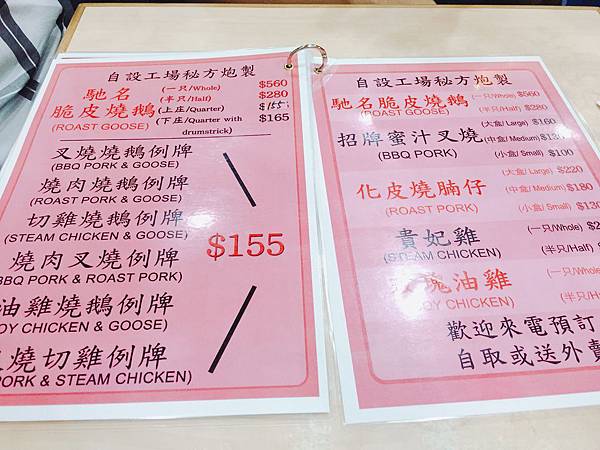 自設工場秘方炮製
馳名 (一只/Whole) $560
(半只/Half) $280
脆皮燒鵝 (上庄/Quarter) $155
(ROAST GOOSE) (下庄/Quarter with drumstrick) $165
叉燒燒鵝例牌
(BBQ PORK & GOOSE)
燒肉燒鵝例牌
(ROAST PORK & GOOSE)
切雞燒鵝例牌
(STEAM CHICKEN & GOOSE)
$155
燒肉叉燒例牌
BBQ PORK & ROAST PORK)
油雞燒鵝例牌
OY CHICKEN & GOOSE)
燒切雞例牌
PORK & STEAM CHICKEN)
自設工場秘方炮製
馳名脆皮燒鵝 (一只/Whole) $560
(ROAST GOOSE) (半只/Half) $280
招牌蜜汁叉燒 (大盒/ Large) $160
(BBQ PORK) (中盒/ Medium) $130
(小盒/ Small) $100
化皮燒腩仔 (大盒/ Large) $220
(ROAST PORK) (中盒/ Medium) $180
(小盒/ Small) $130
貴妃雞 (一只/Whole)
(STEAM CHICKEN) (半只/Half)
瑰油雞 (一只/Whole)
OY CHICKEN) (半只/Half)
歡迎來電預訂
自取或送外賣